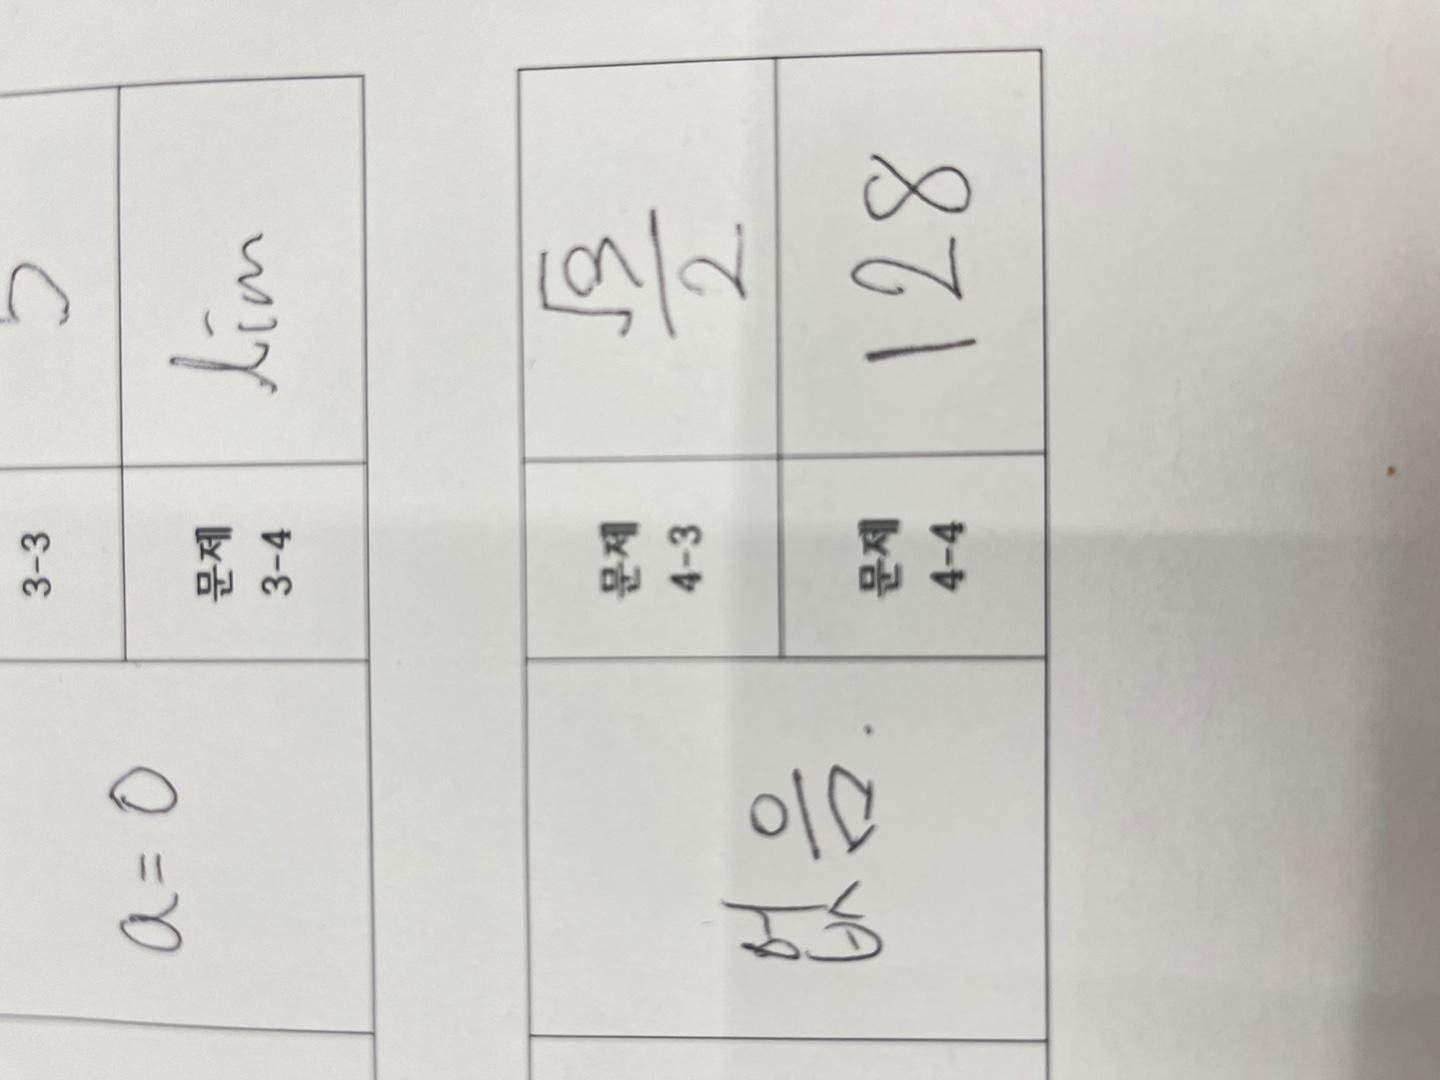 3-3
a=0
문제
3-4
lim
없음.
문제
4-3
√3/2
문제
4-4
128